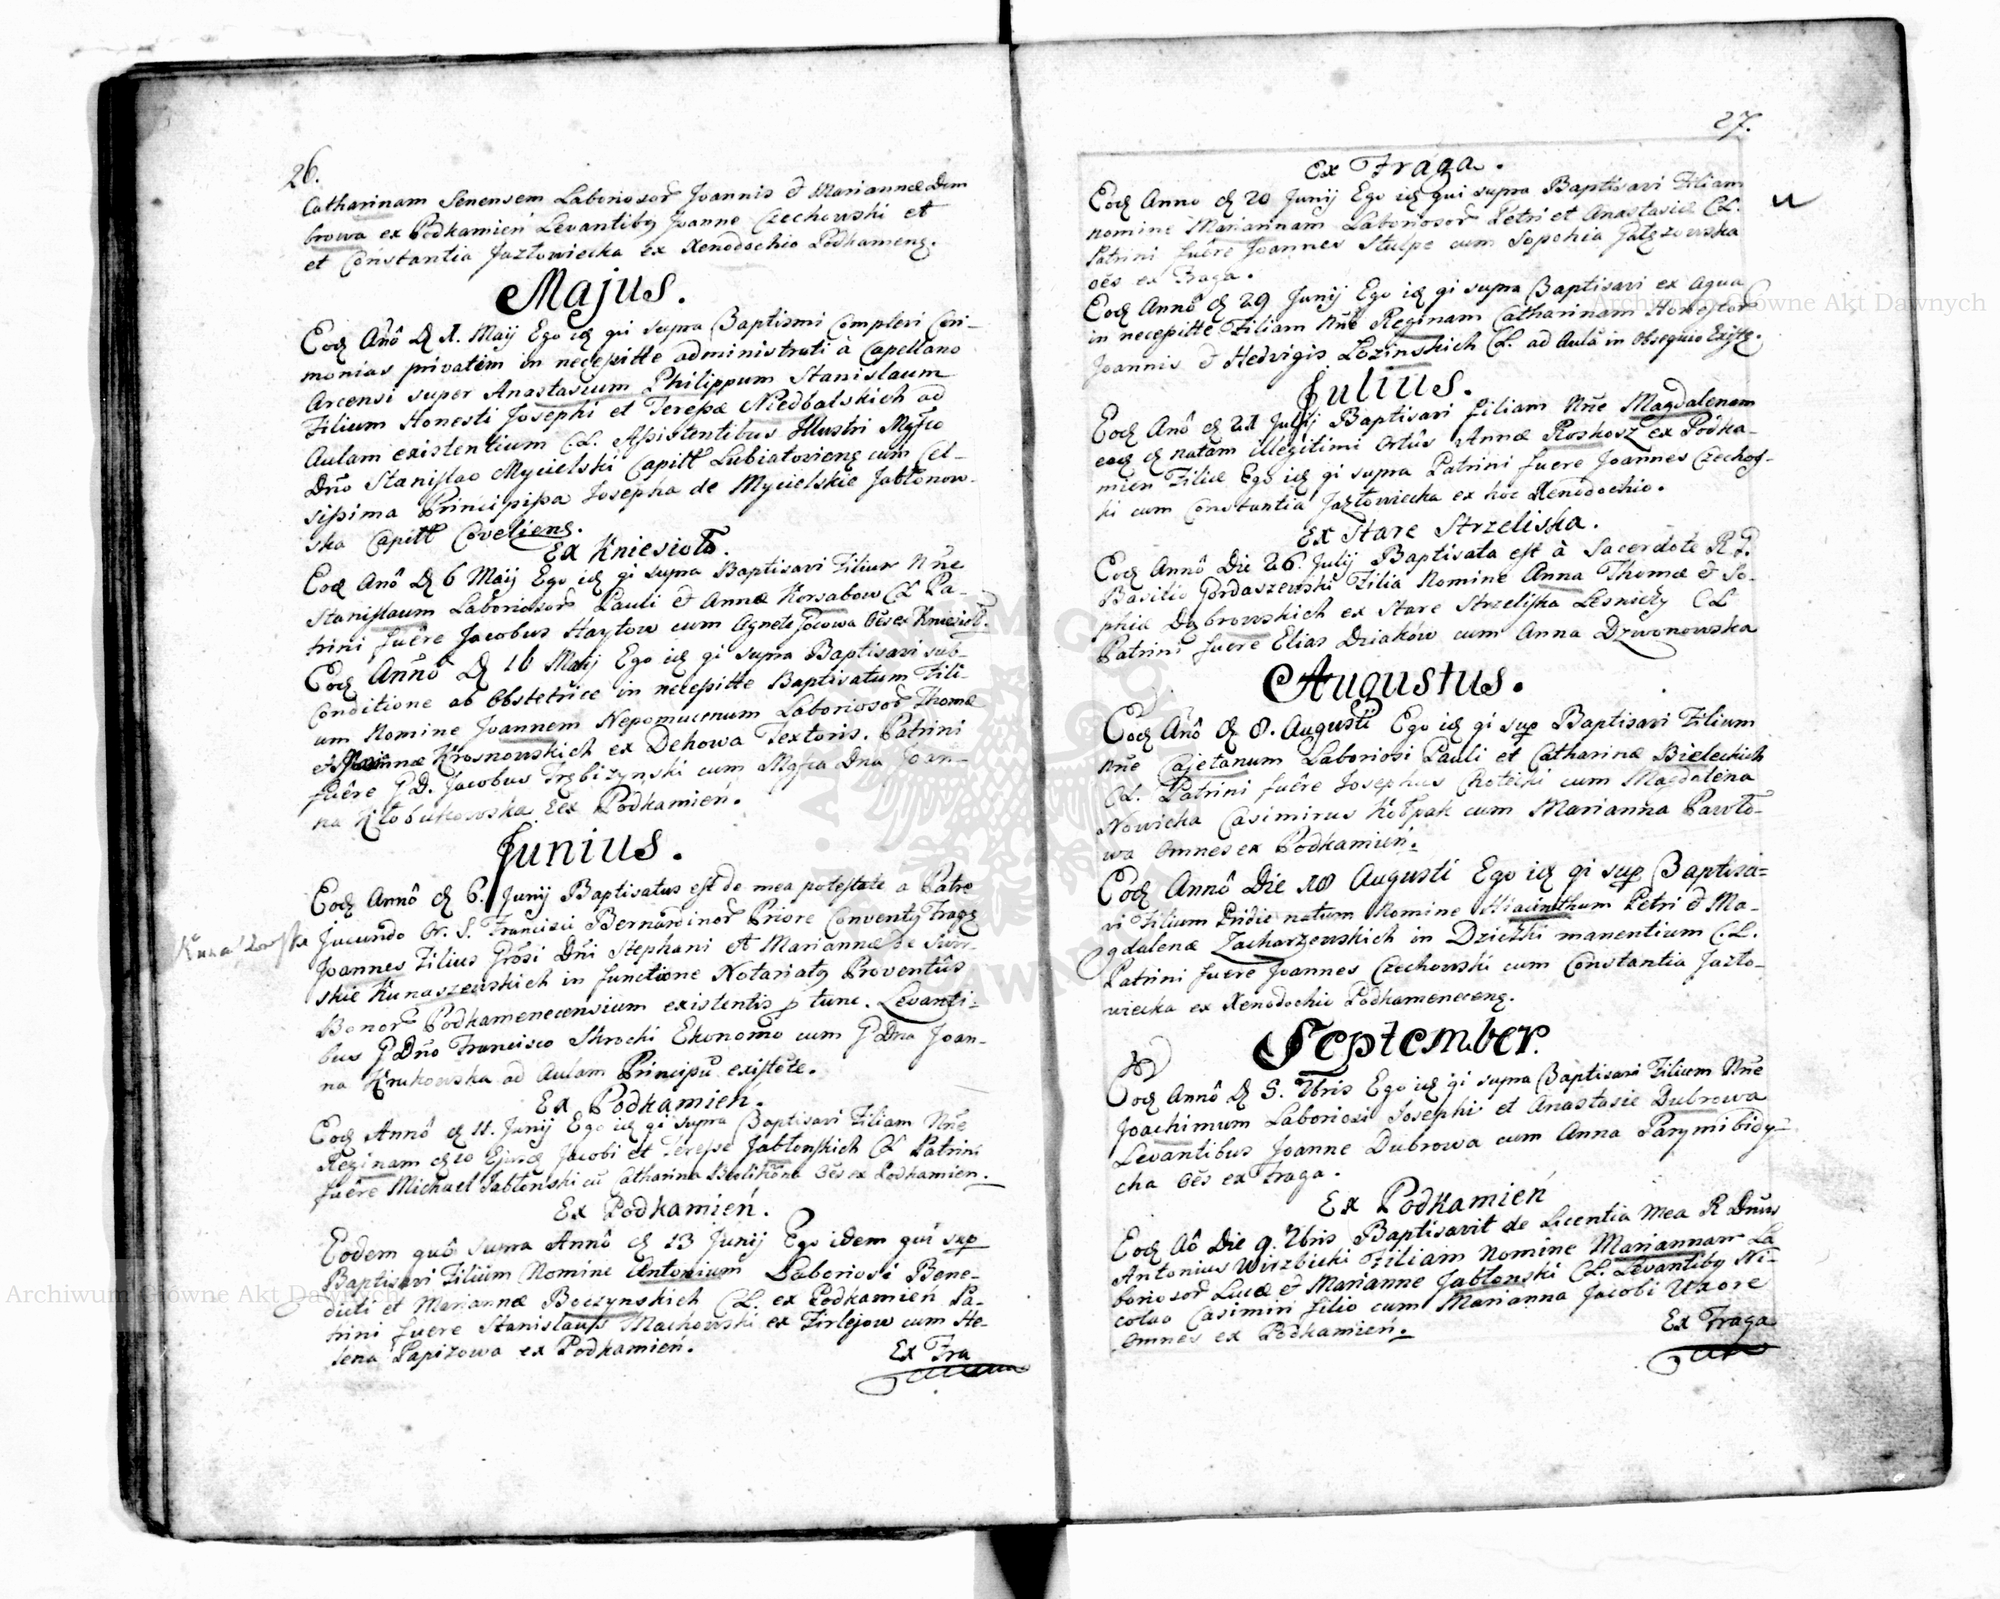 26.
Catharinam Senensem Laboriosor Joannis & Mariannæ Dem
browa ex Podkamień Levantibq Joanne Czechowski et
et Constantia Jazłowiecka ex Xenodochio Podkameng.
Majus.
Eodq Anô dq 1. Maij Ego idq qui supra Baptismi Complevi Ceri-
monias privatim in necessitte administrati à Capellano
Arcensi super Anastasium Philippum Stanislaum
Filium Honesti Josephi et Teresæ Niedbalskich ad
Aulam existentium CL. Assistentibus Illustri Mgfco
Dno Stanislao Mycielski Capitt Lubiatovieng cum Cel-
sissima Principissa Josepha de Mycielskie Jabłonow-
ska Capitt Coveliens.
Ex Kniesioło.
Eodq Anô dq 6 Maij Ego idq qi supra Baptisavi Filium Nñe
Stanislaum Laboriosor Pauli & Annæ Korsabow CL Pa-
trini fuêre Jacobus Haytow cum Agnete Jocowa Oês ex Kniesioło.
Eodq Annô dq 16 Maij Ego idq qi supra Baptisavi sub-
Conditione ab Obstetrice in necessitte Baptisatum Fili-
um Nomine Joannem Nepomucenum Laboriosor Thomæ
et Krosnowskich ex Dehowa Textoris. Patrini
fuêre GD. Jacobus Trębizynski cum Mgfca Dna Joan-
na Kłobukowska Eex Podkamień.
Junius.
Eodq Annô dq 6. Junij Baptisatus est de mea potestate a Patre
Jucundo Or. S. Francisci Bernardinor Priore Conventq Fragg
Joannes Filius Grôsi Dñi Stephani et Mariannæ de Surr-
skie Kunaszewskich in functione Notariatq Proventûs
Bonor Podkamenecensium existentis p tunc. Levanti-
bus G Dño Francisco Skrochi Ekonomo cum G Dna Joan-
na Krukowska ad Aulam Principu existête.
Ex Podkamień.
Eodq Annô dq 11. Junij Ego idq qi supra Baptisavi Filiam Nñe
Reginam dq 10 Ejusdq Jacobi et Teresæ Jabłonskich CL Patrini
fuêre Michael Jabłonski cû Catharina Oês ex Podkamien.
Ex Podkamień.
Eodem quô supra Annô dq 13 Junij Ego idem qui sup
Baptisavi Filium Nomine Antonium Laboriosi Bene-
dicti et Mariannæ Boczynskich CL. ex Podkamień Pa-
trini fuere Stanislaus Machowski ex Firlejow cum He-
lena Papizowa ex Podkamień.
Ex Fra
27.
Ex Fraga.
Eodq Anno dq 20 Junij Ego idq qui supra Baptisavi Filiam
nomine Mariannam Laboriosor Petri et Anastasiæ CL.
Patrini fuêre Joannes Stulpe cum Sopchia Gałęzowska
oês ex Fraga.
Eodq Annô dq 29 Junij Ego idq qi supra Baptisavi ex aqua
in necessitte Filiam Nñe Reginam Catharinam Honestor
Joannis & Hedvigis Lozinskich CL. ad Aulâ in Obsequio Exists.
Julius.
Eodq Anô dq 21 Julij Baptisavi filiam Nñe Magdalenam
eodq dq natam illegitimi ortûs Annæ Roskosz ex Podka-
mien Filiæ Ego idq qi supra Patrini fuere Joannes Czechos-
ki cum Constantia Jazłowiecka ex hoc Xenodochio.
Ex Stare Strzeliska.
Eodq Annô Die 26. Julij Baptisata est à Sacerdote R.P.
Basilio Gordaszewski Filia Nomine Anna Thomæ & So-
phiæ Dąbrowskich ex Stare Strzeliska Lesniczy CL
Patrini fuere Elias Dziaków cum Anna Dzwonowska
Augustus.
Eodq Anô dq 8. Augusti Ego idq qi sup Baptisavi Filium
Nñe Cajetanum Laboriosi Pauli et Catharinæ Bieleckich
CL. Patrini fuêre Josephus Chotecki cum Magdalena
Nowicka Casimirus Kołpak cum Marianna Pawło-
wa Omnes ex Podkamień.
Eodq Annô Die 18 Augusti Ego idq qi sup Baptisa-
vi Filium Pridie natum Nomine Hiacinthum Petri & Ma-
gdalenæ Zacharzewskich in Dziczki manentium CL.
Patrini fuere Joannes Czechowski cum Constantia Jazło-
wiecka ex Xenodochio Podkameneceng.
September.
Eodq Annô dq 5. 7bris Ego idq qi supra Baptisavi Filium Nñe
Joachimum Laboriosi Josephi et Anastasiæ Dubrowa
Levantibus Joanne Dubrowa cum Anna Parymibidy-
cha Oês ex Fraga.
Ex Podkamień
Eodq Aô Die 9. 7bris Baptisavit de Licentia Mea R Dnus
Antonius Wirzbicki Filiam Nomine Mariannam La
boriosor Lucæ & Marianne Jabłonski CL. Levantibq Ni-
colao Casimiri filio cum Marianna Jacobi Uxore
Omnes ex Podkamień.
Ex Fraga
Archiwum Główne Akt Dawnych
Archiwum Główne Akt Dawnych